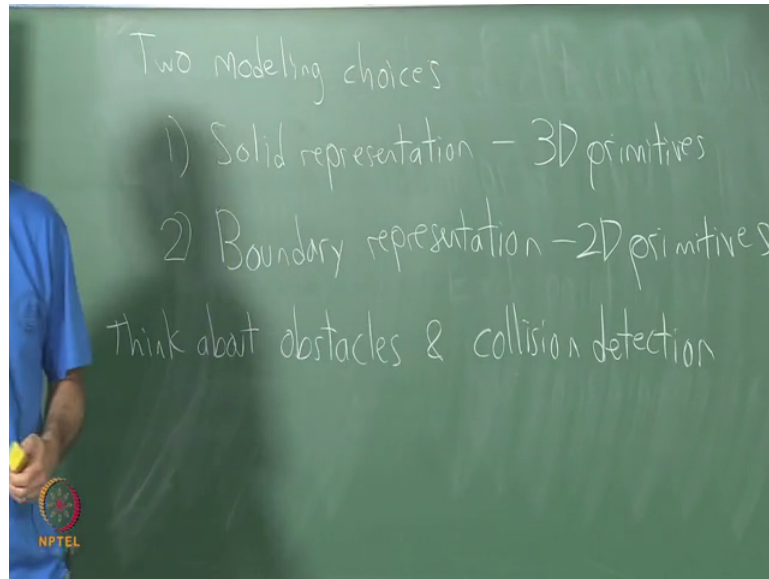 Two modeling choices
1) Solid representation - 3D primitives
2) Boundary representation - 2D primitives
Think about obstacles & collision detection
NPTEL